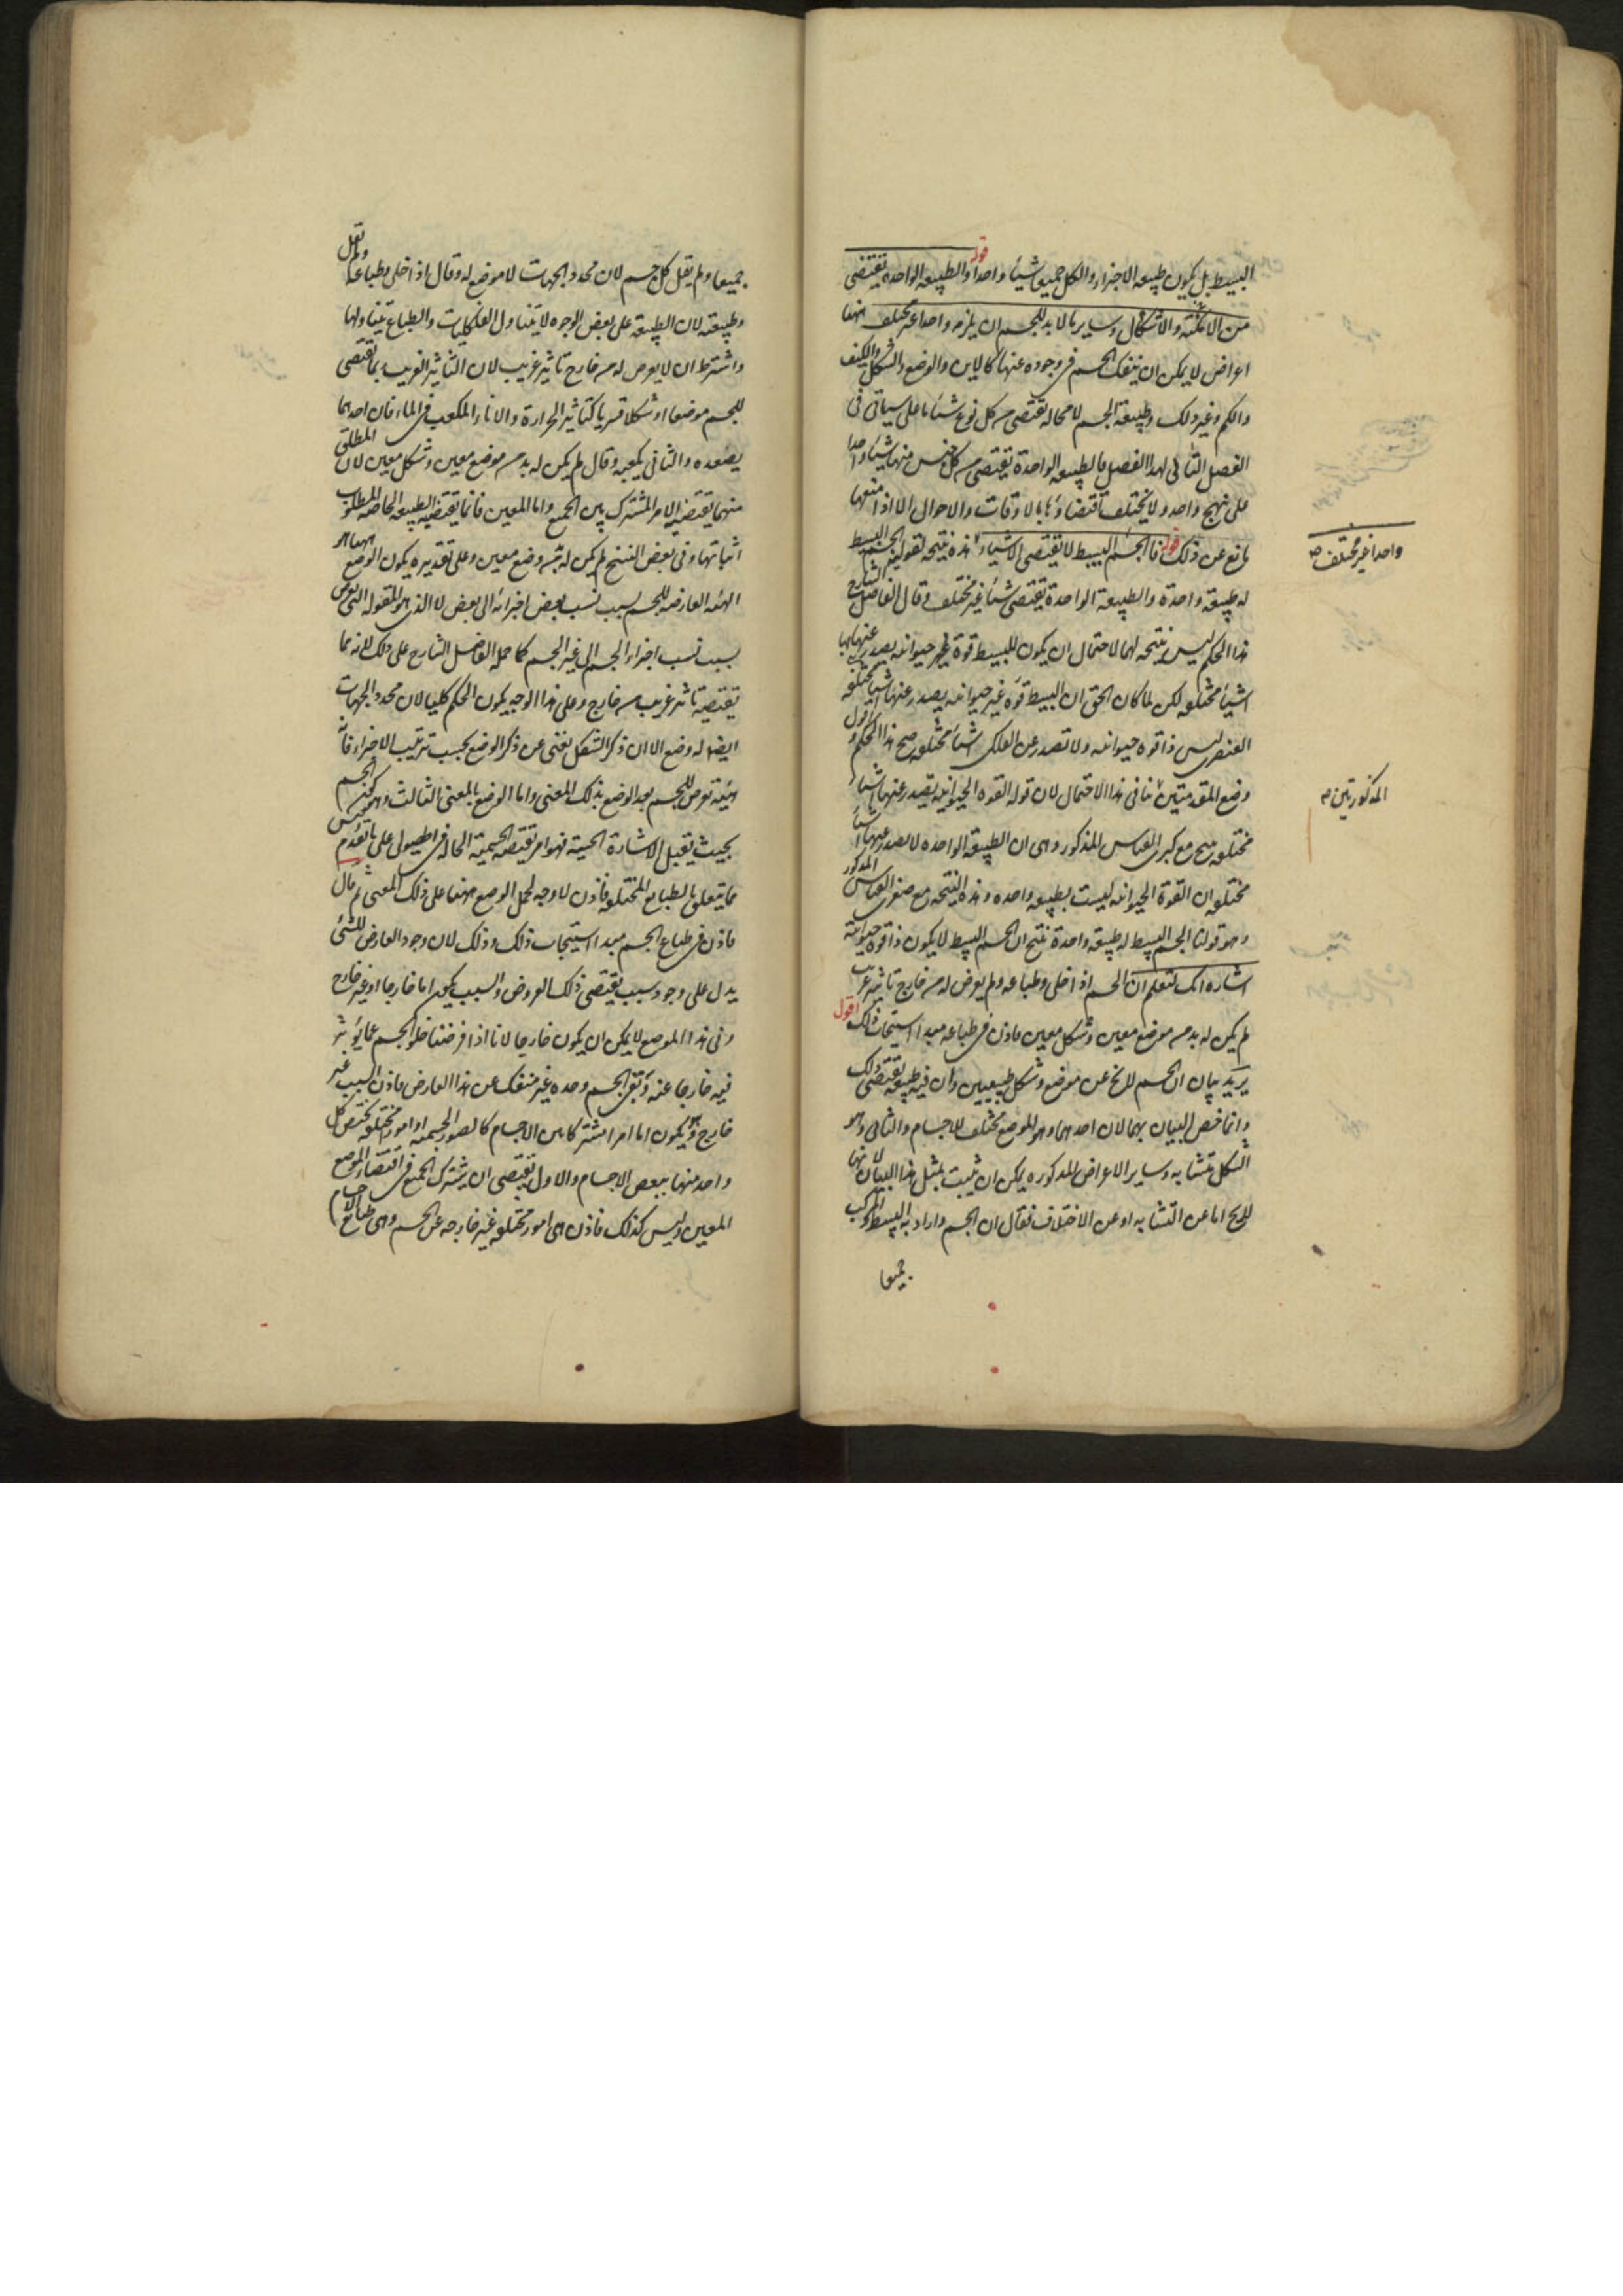 البسيط بل يكون طبيعه الاجزاء والكل جميعا شيئا واحدا قوله والطبيعه الواحده تقتضى
من الامكنة والاشكال وساير ما لا بد للجسم ان يلزمه واحدا غير مختلف اقول ههنا
اعراض لا يمكن ان ينفك الجسم فى وجوده عنها كالاين والوضع والشكل والكيف
والكم وغير ذلك وطبيعة الجسم لا محاله تقتضى من كل نوع شيئا ما على سياتى فى
الفصل التالى لهذا الفصل فالطبيعه الواحدة تقتضى من كل جنس منها شيئا واحدا
على نهج واحد ولا يختلف اقتضاؤها بالاوقات والاحوال الا اذا منعها
مانع عن ذلك قوله فالجسم البسيط لا يقتضى الا شيئا هذه نتيجه لقولين الجسم البسيط
واحدا غير مختلف صح
له طبيعة واحدة والطبيعة الواحدة تقتضى شيئا غير مختلف وقال الفاضل الشارح
هذا الحكم ليس نتيجه لهما لاحتمال ان يكون للبسيط قوة غير حيوانيه يصدر عنها
اشياء مختلفه لكن لما كان الحق ان البسيط قوه غير حيوانيه يصدر عنها اشيا مختلفه
العنصرى ليس ذا قوه حيوانيه ولا تصدر عن الفلكى اشيا مختلفه صح هذا الحكم اقول
وضع المقدمتين ينافى هذا الاحتمال لان قوله القوه الحيوانية تصدر عنها اشياء
المذكورتين صح
مختلفه ينتج مع كبرى القياس المذكور وهى ان الطبيعة الواحده لا يصدر عنها اشيا
مختلفه ان القوة الحيوانيه ليست بطبيعه واحده وهذه النتيجه مع صغرى القياس المذكور
وهو قولنا الجسم البسيط له طبيعة واحدة ينتج ان الجسم البسيط لا يكون ذا قوة حيوانية
اشاره انك لتعلم ان الجسم اذا خلى وطباعه ولم يعرض له من خارج تاثير غريب
لم يكن له بد من موضع معين وشكل معين فاذن فى طباعه مبدا استيجاب ذلك اقول
يريد بيان ان الجسم لا يخ عن موضع وشكل طبيعيين وان فيه طبيعة تقتضى ذلك
وانما خص البيان بهما لان احدهما وهو الموضع مختلف للاجسام والثانى وهو
الشكل متشابه وساير الاعراض المذكوره يمكن ان يثبت بمثل هذا البيان لانها
لا يخ اما عن التشابه او عن الاختلاف فقال ان الجسم واراد به البسيط والمركب
جميعا
جميعا ولم يقل كل جسم لان محدد الجهات لا موضع له وقال اذا خلى وطباعه ولم يقل
وطبيعته لان الطبيعة على بعض الوجوه لا يتناول الفلكيات والطباع يتناولها
واشترط ان لا يعرض له من خارج تاثير غريب لان التاثير الغريب ربما تقتضى
للجسم موضعا او شكلا قسريا كتاثير الحرارة والاناء المكعب فى الماء فان احدهما
يصعده والثانى يكعبه وقال لم يكن له بد من موضع معين وشكل معين لان المطلق
منهما يقتضيه الامر المشترك بين الجميع واما المعين فانما يقتضيه الطبيعه الخاصه المطلوب
اثباتها وفى بعض النسخ لم يكن له بد من وضع معين وعلى تقديره يكون الوضع ههنا هو
الهيئه العارضه للجسم بسبب نسب بعض اجزائه الى بعض لا الذى هو المقوله التى تعرض
بسبب نسب اجزاء الجسم الى غير الجسم كما حمله الفاضل الشارح على ذلك لانه مما
تقتضيه تاثر غريب من خارج وعلى هذا الوجه يكون الحكم كليا لان محدد الجهات
ايضا له وضع الا ان ذكر الشكل يغنى عن ذكر الوضع بحسب ترتيب الاجزاء فانه
هيئة تعرض للجسم بعد الوضع بذلك المعنى واما الوضع بالمعنى الثالث وهو كون الجسم
بحيث يقبل الاشارة الحسية فهو امر تقتضيه الجسمية الحالة فى الهيولى على ما تقدم
مما يتعلق بالطباع المختلفه فاذن لا وجه لحمل الوضع ههنا على ذلك المعنى ثم قال
فاذن فى طباع الجسم مبدا استيجاب ذلك وذلك لان وجود العارض للشئ
يدل على وجود سبب يقتضى ذلك العروض والسبب يكون اما خارجا او غير خارج
وفى هذا الموضع لا يمكن ان يكون خارجا لانا اذا فرضنا خلو الجسم عما يوثر
فيه خارجا عنه وبقى الجسم وحده غير منفك عن هذا العارض فاذن السبب غير
خارج وهو يكون اما امرا مشتركا بين الاجسام كالصور الجسميه او امورا مختلفه يختص كل
واحد منها ببعض الاجسام والاول يقتضى ان يشترك الجميع فى اقتضاء الموضع
المعين وليس كذلك فاذن هى امور مختلفه غير خارجه عن الجسم وهى طبايع الاجسام